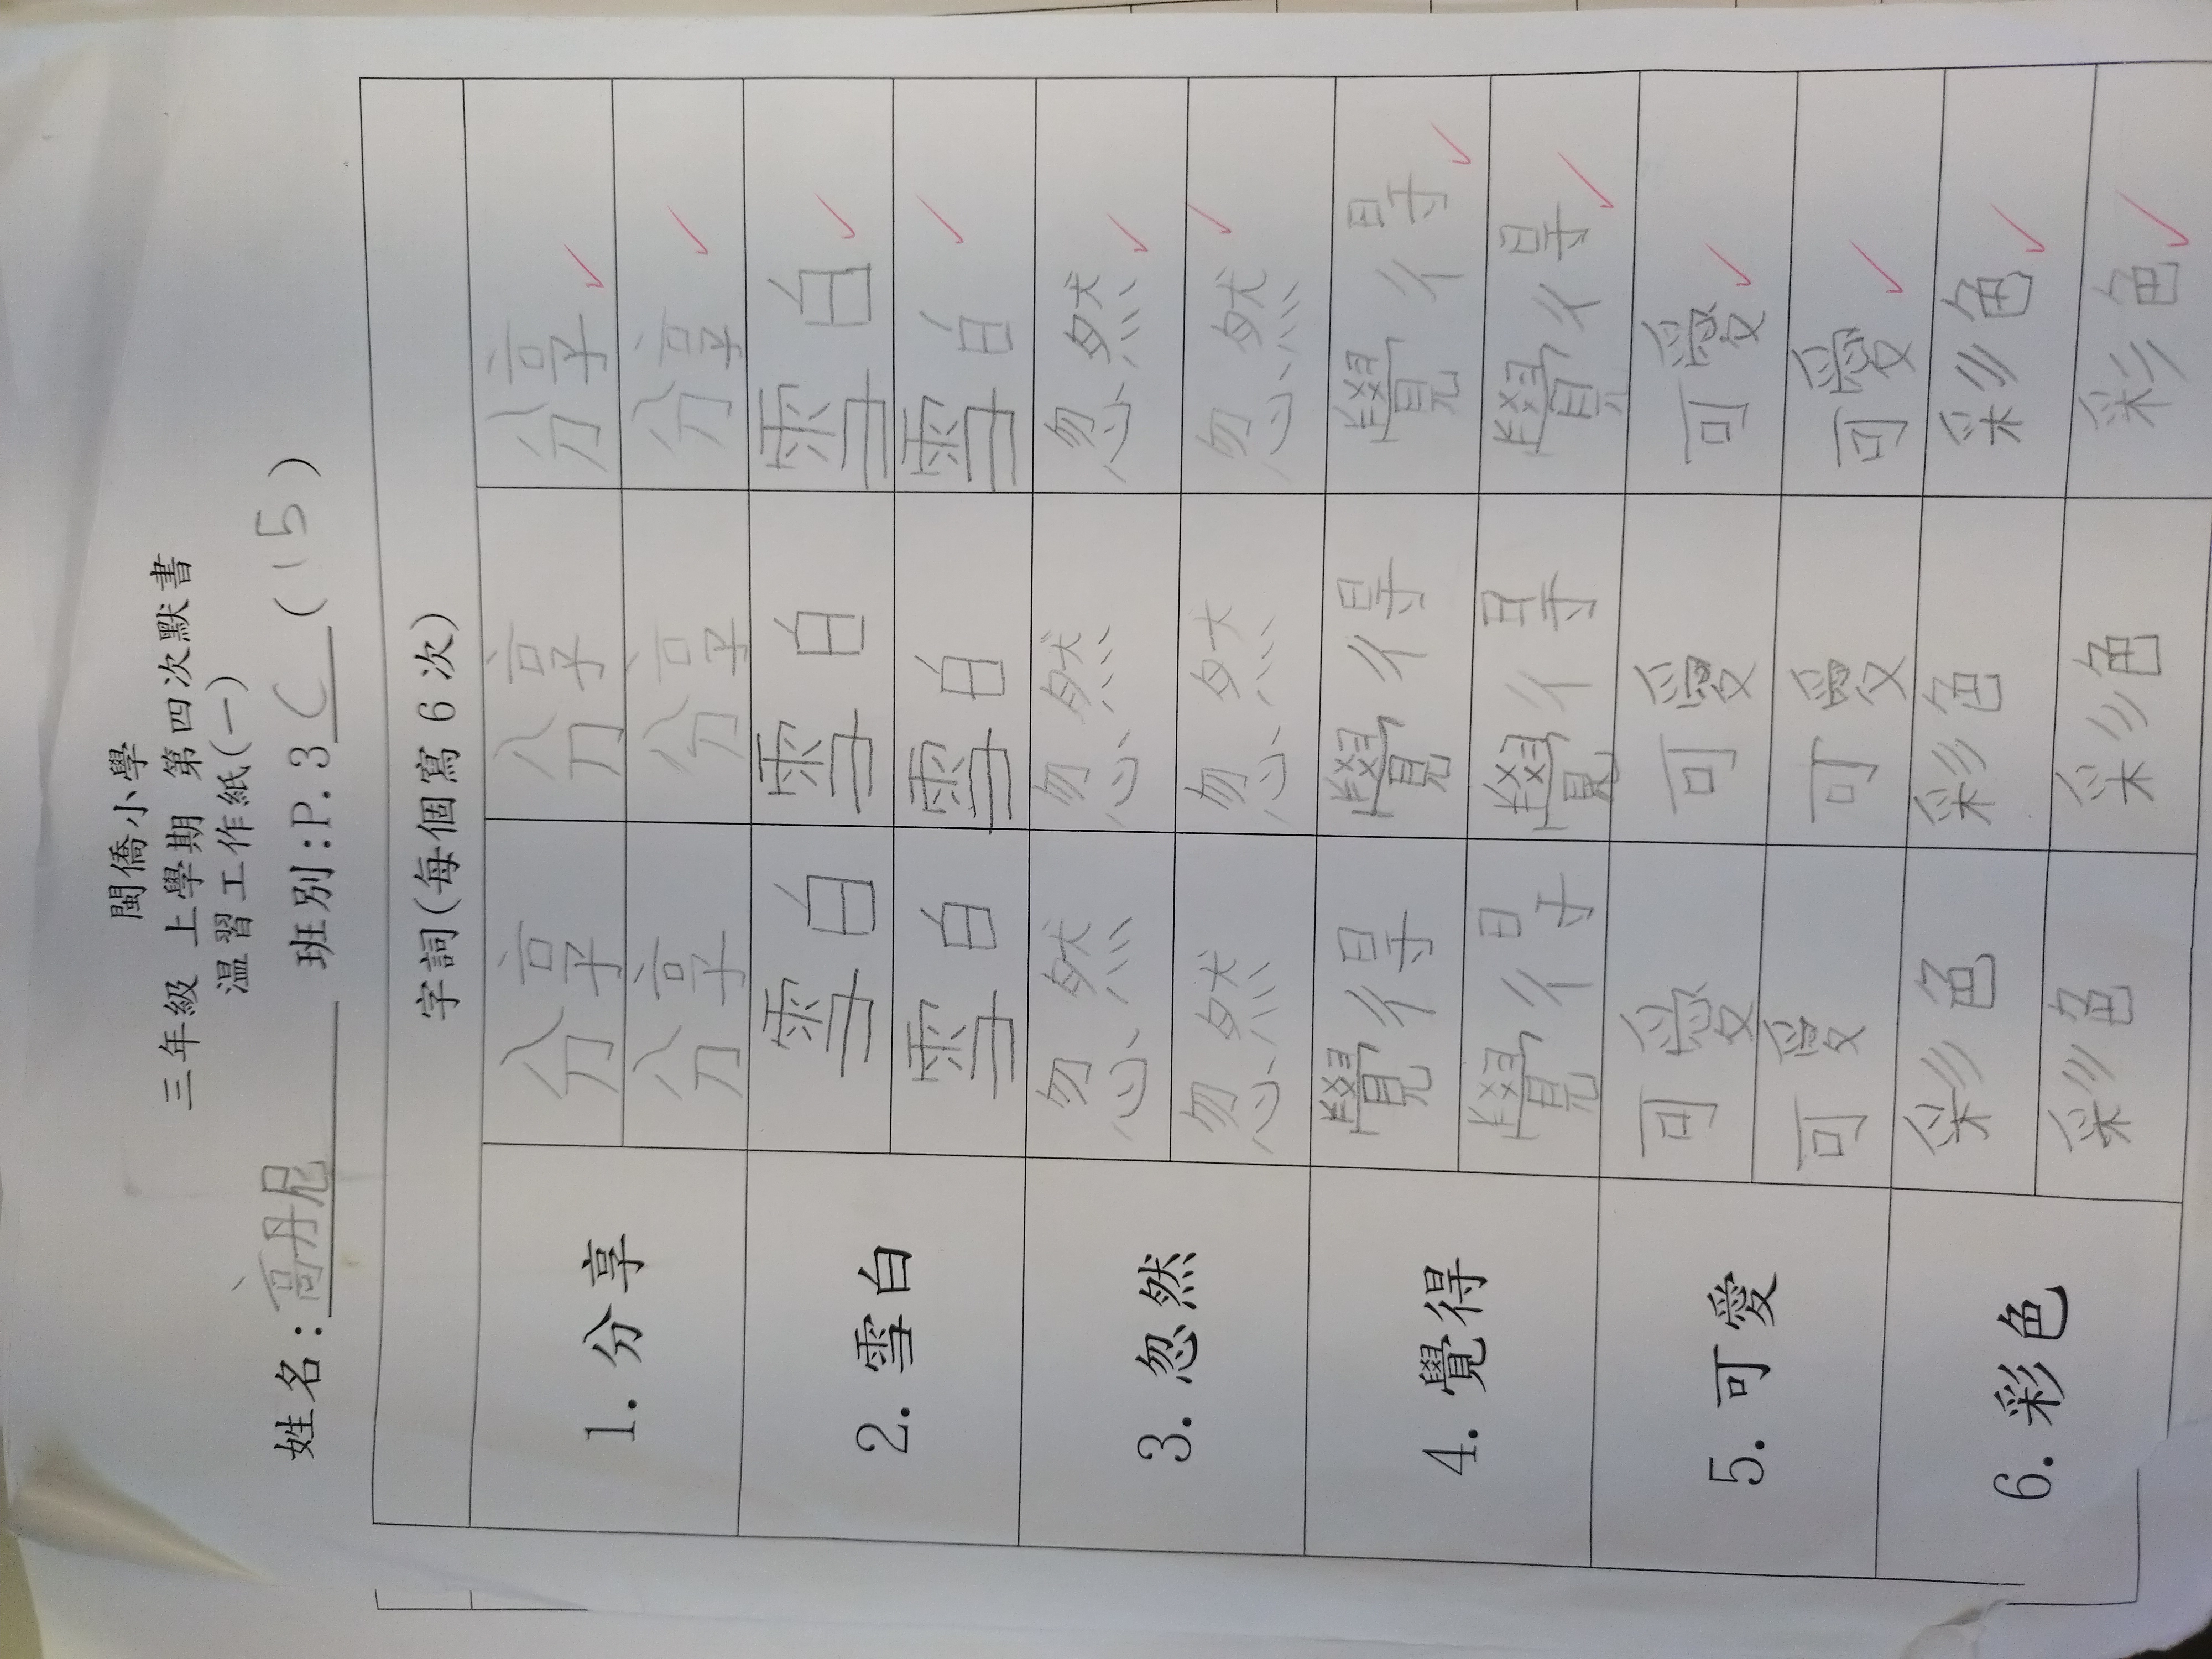 閩僑小學
三年級 上學期 第四次默書
溫習工作紙(一)
姓名:高丹尼 班別:P.3C(15)
字詞(每個寫6次)
1.分享 分享 分享 分享
分享 分享 分享
2.雪白 雪白 雪白 雪白
雪白 雪白 雪白
3.忽然 忽然 忽然 忽然
忽然 忽然 忽然
4.覺得 覺得 覺得 覺得
覺得 覺得 覺得
5.可愛 可愛 可愛 可愛
可愛 可愛 可愛
6.彩色 彩色 彩色 彩色
彩色 彩色 彩色